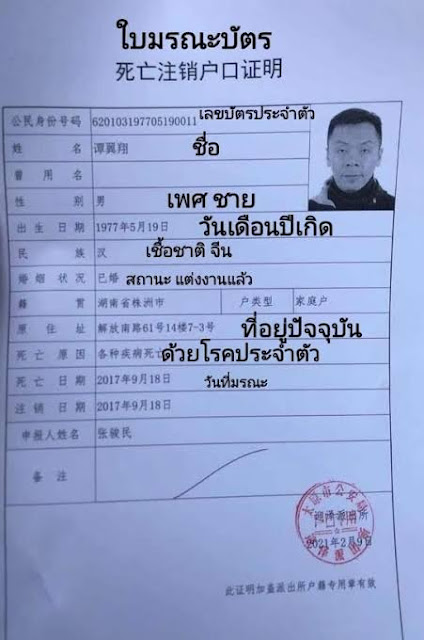 ใบมรณะบัตร
死亡注销户口证明
公民身份号码 620103197705190011 เลขบัตรประจำตัว
姓 名 谭翼翔 ชื่อ
曾 用 名
性 别 男 เพศ ชาย
出 生 日 期 1977年5月19日 วันเดือนปีเกิด
民 族 汉 เชื้อชาติ จีน
婚 姻 状 况 已婚 สถานะ แต่งงานแล้ว
籍 贯 湖南省株洲市 户类型 家庭户
原 住 址 解放南路61号14楼7-3号 ที่อยู่ปัจจุบัน
死 亡 原 因 各种疾病死亡 ด้วยโรคประจำตัว
死 亡 日 期 2017年9月18日 วันที่มรณะ
注 销 日 期 2017年9月18日
申报人姓名 张骏民
备 注
太原市公安局
迎泽派出所
2021年2月9日
此证明加盖派出所户籍专用章有效